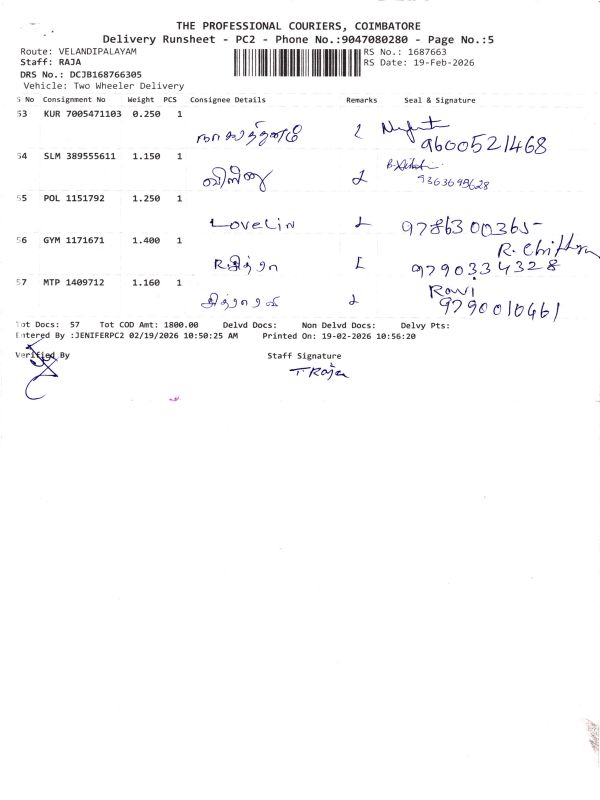 THE PROFESSIONAL COURIERS, COIMBATORE
Delivery Runsheet - PC2 - Phone No.:9047080280 - Page No.:5
Route: VELANDIPALAYAM
RS No.: 1687663
Staff: RAJA
RS Date: 19-Feb-2026
DRS No.: DCJB168766305
Vehicle: Two Wheeler Delivery
S No Consignment No Weight PCS Consignee Details Remarks Seal & Signature
53 KUR 7005471103 0.250 1
9600521468
54 SLM 389555611 1.150 1
55 POL 1151792 1.250 1
LOVELIN 9786300365
56 GYM 1171671 1.400 1
R. Chithra
9790334328
57 MTP 1409712 1.160 1
Ravi
9790010661
Tot Docs: 57 Tot COD Amt: 1800.00 Delvd Docs: Non Delvd Docs: Delvy Pts:
Entered By :JENIFERPC2 02/19/2026 10:50:25 AM Printed On: 19-02-2026 10:56:20
Verified By Staff Signature
T. Raja